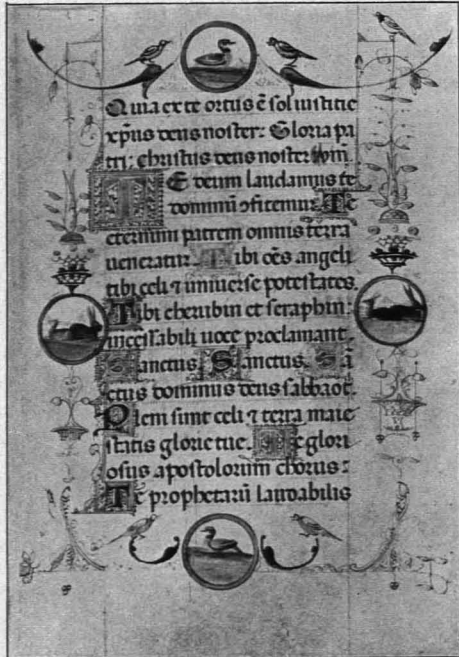 Quia ex te ortus ē sol iusticie
xp̄us deus noster: Gloria pa
tri: christus deus noster
TE deum laudamus te
dominū ↄfitemur. Te
eternum patrem omnis terra
ueneratur. Tibi oēs angeli
tibi celi ⁊ uniuerse potestates.
Tibi cherubin et seraphin:
incessabili uoce proclamant.
Sanctus. Sanctus. Sā
ctus dominus deus sabbaot.
Pleni sunt celi ⁊ terra maie
statis glorie tue. Te glori
osus apostolorum chorus:
Te prophetarū laudabilis